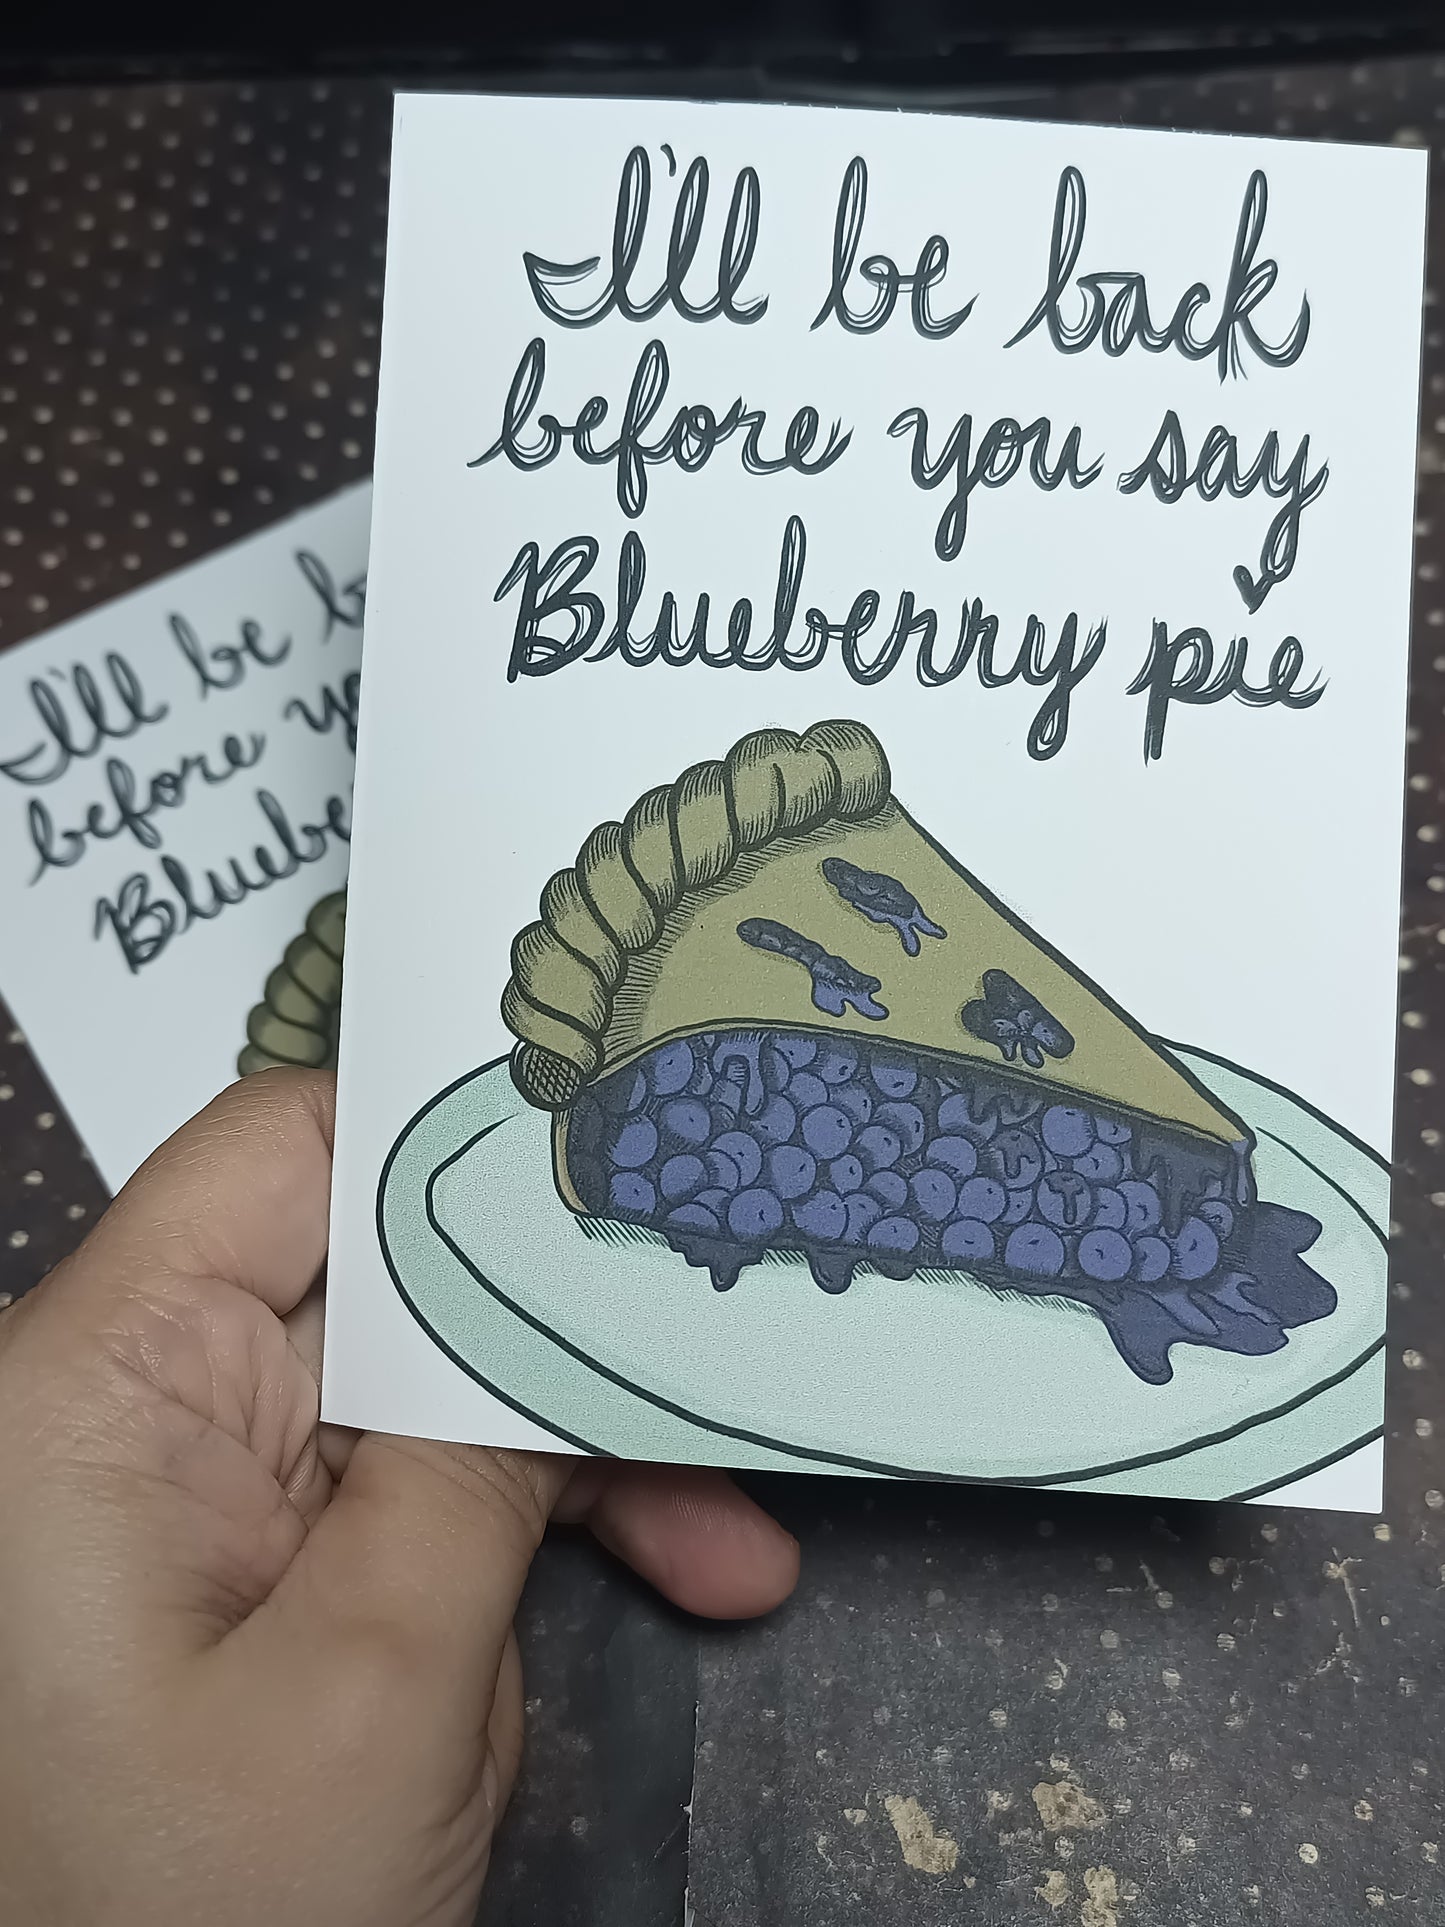 I'll be back
before you say
Blueberry pie
I'll be
before